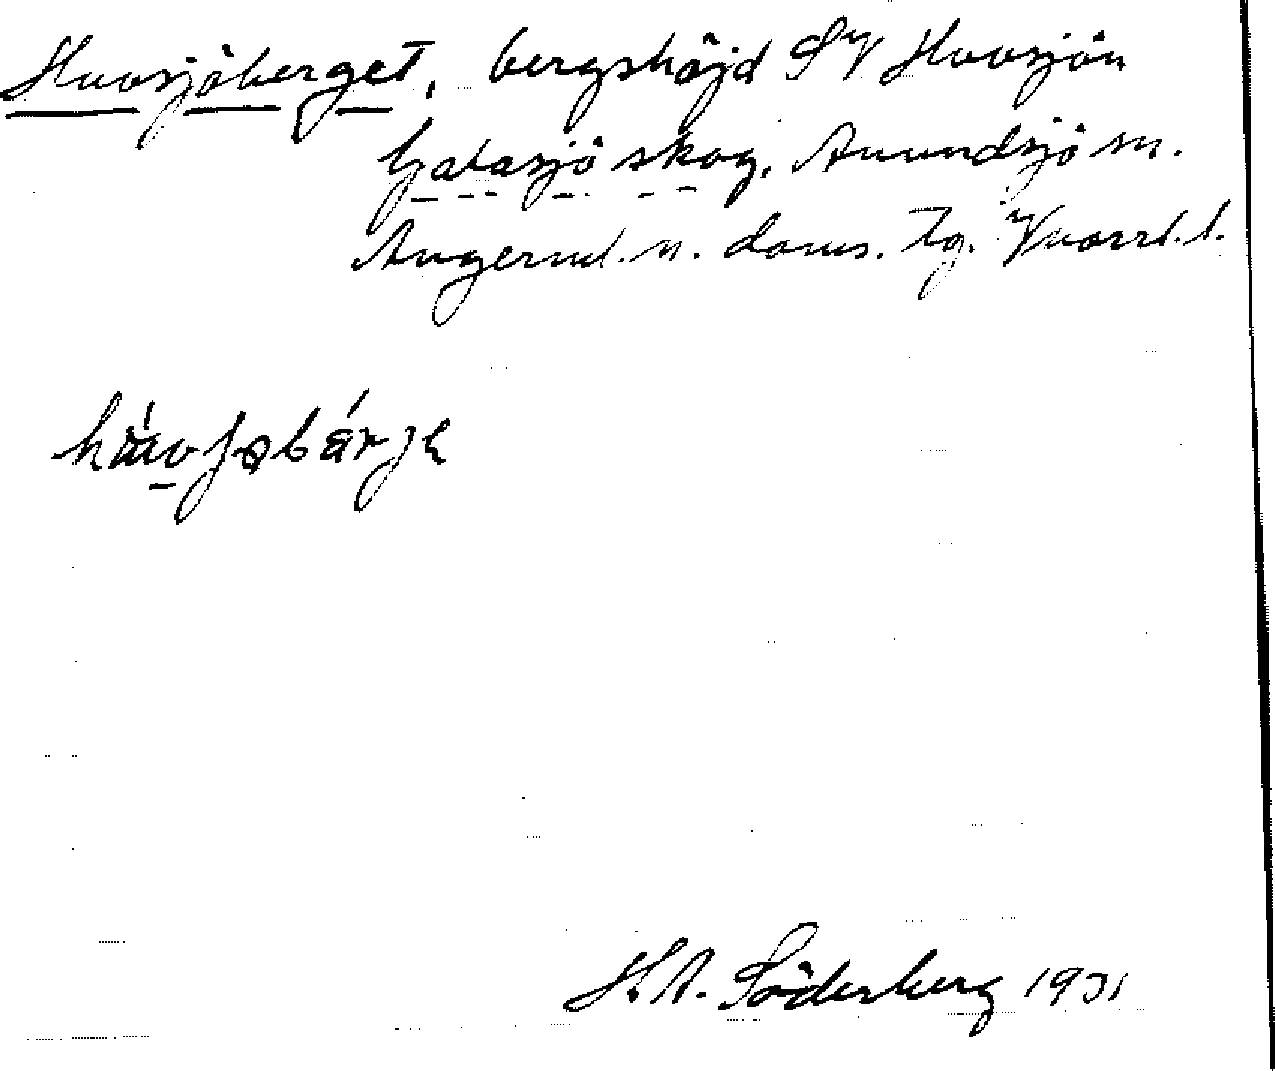 Huvsjöberget, bergshöjd SV Huvsjön
Gatasjö skog, Anundsjö sn.
Ångerml. n. doms. tg. Vnorrl. l.
H. A. Söderberg 1931